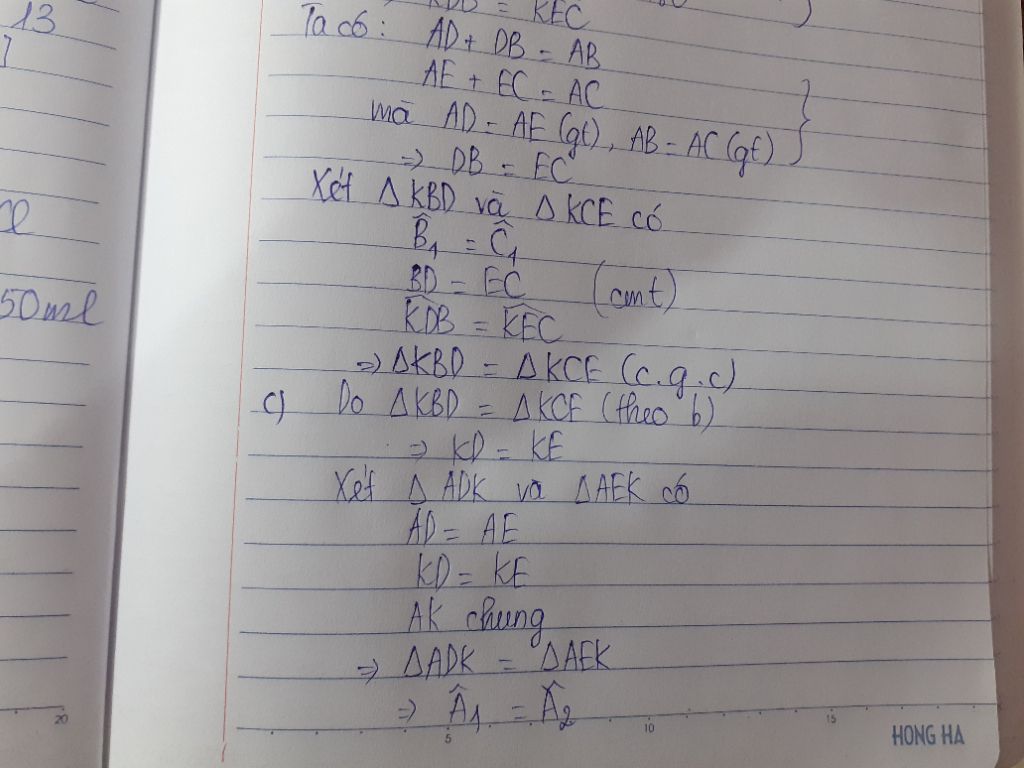 13
KDB = KEC
Ta có: AD + DB = AB
AE + EC = AC
mà AD = AE (gt), AB = AC (gt) }
=> DB = EC
Xét ΔKBD và ΔKCE có
B̂₁ = Ĉ₁
BD = EC (cmt)
50ml
KDB = KEC
=> ΔKBD = ΔKCE (c.g.c)
c) Do ΔKBD = ΔKCE (theo b)
=> KD = KE
Xét ΔADK và ΔAEK có
AD = AE
KD = KE
AK chung
=> ΔADK = ΔAEK
=> Â₁ = Â₂
20 5 10 15
HONG HA